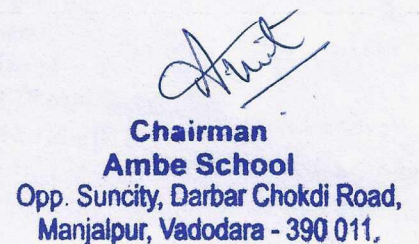 Amit
Chairman
Ambe School
Opp. Suncity, Darbar Chokdi Road,
Manjalpur, Vadodara - 390 011.